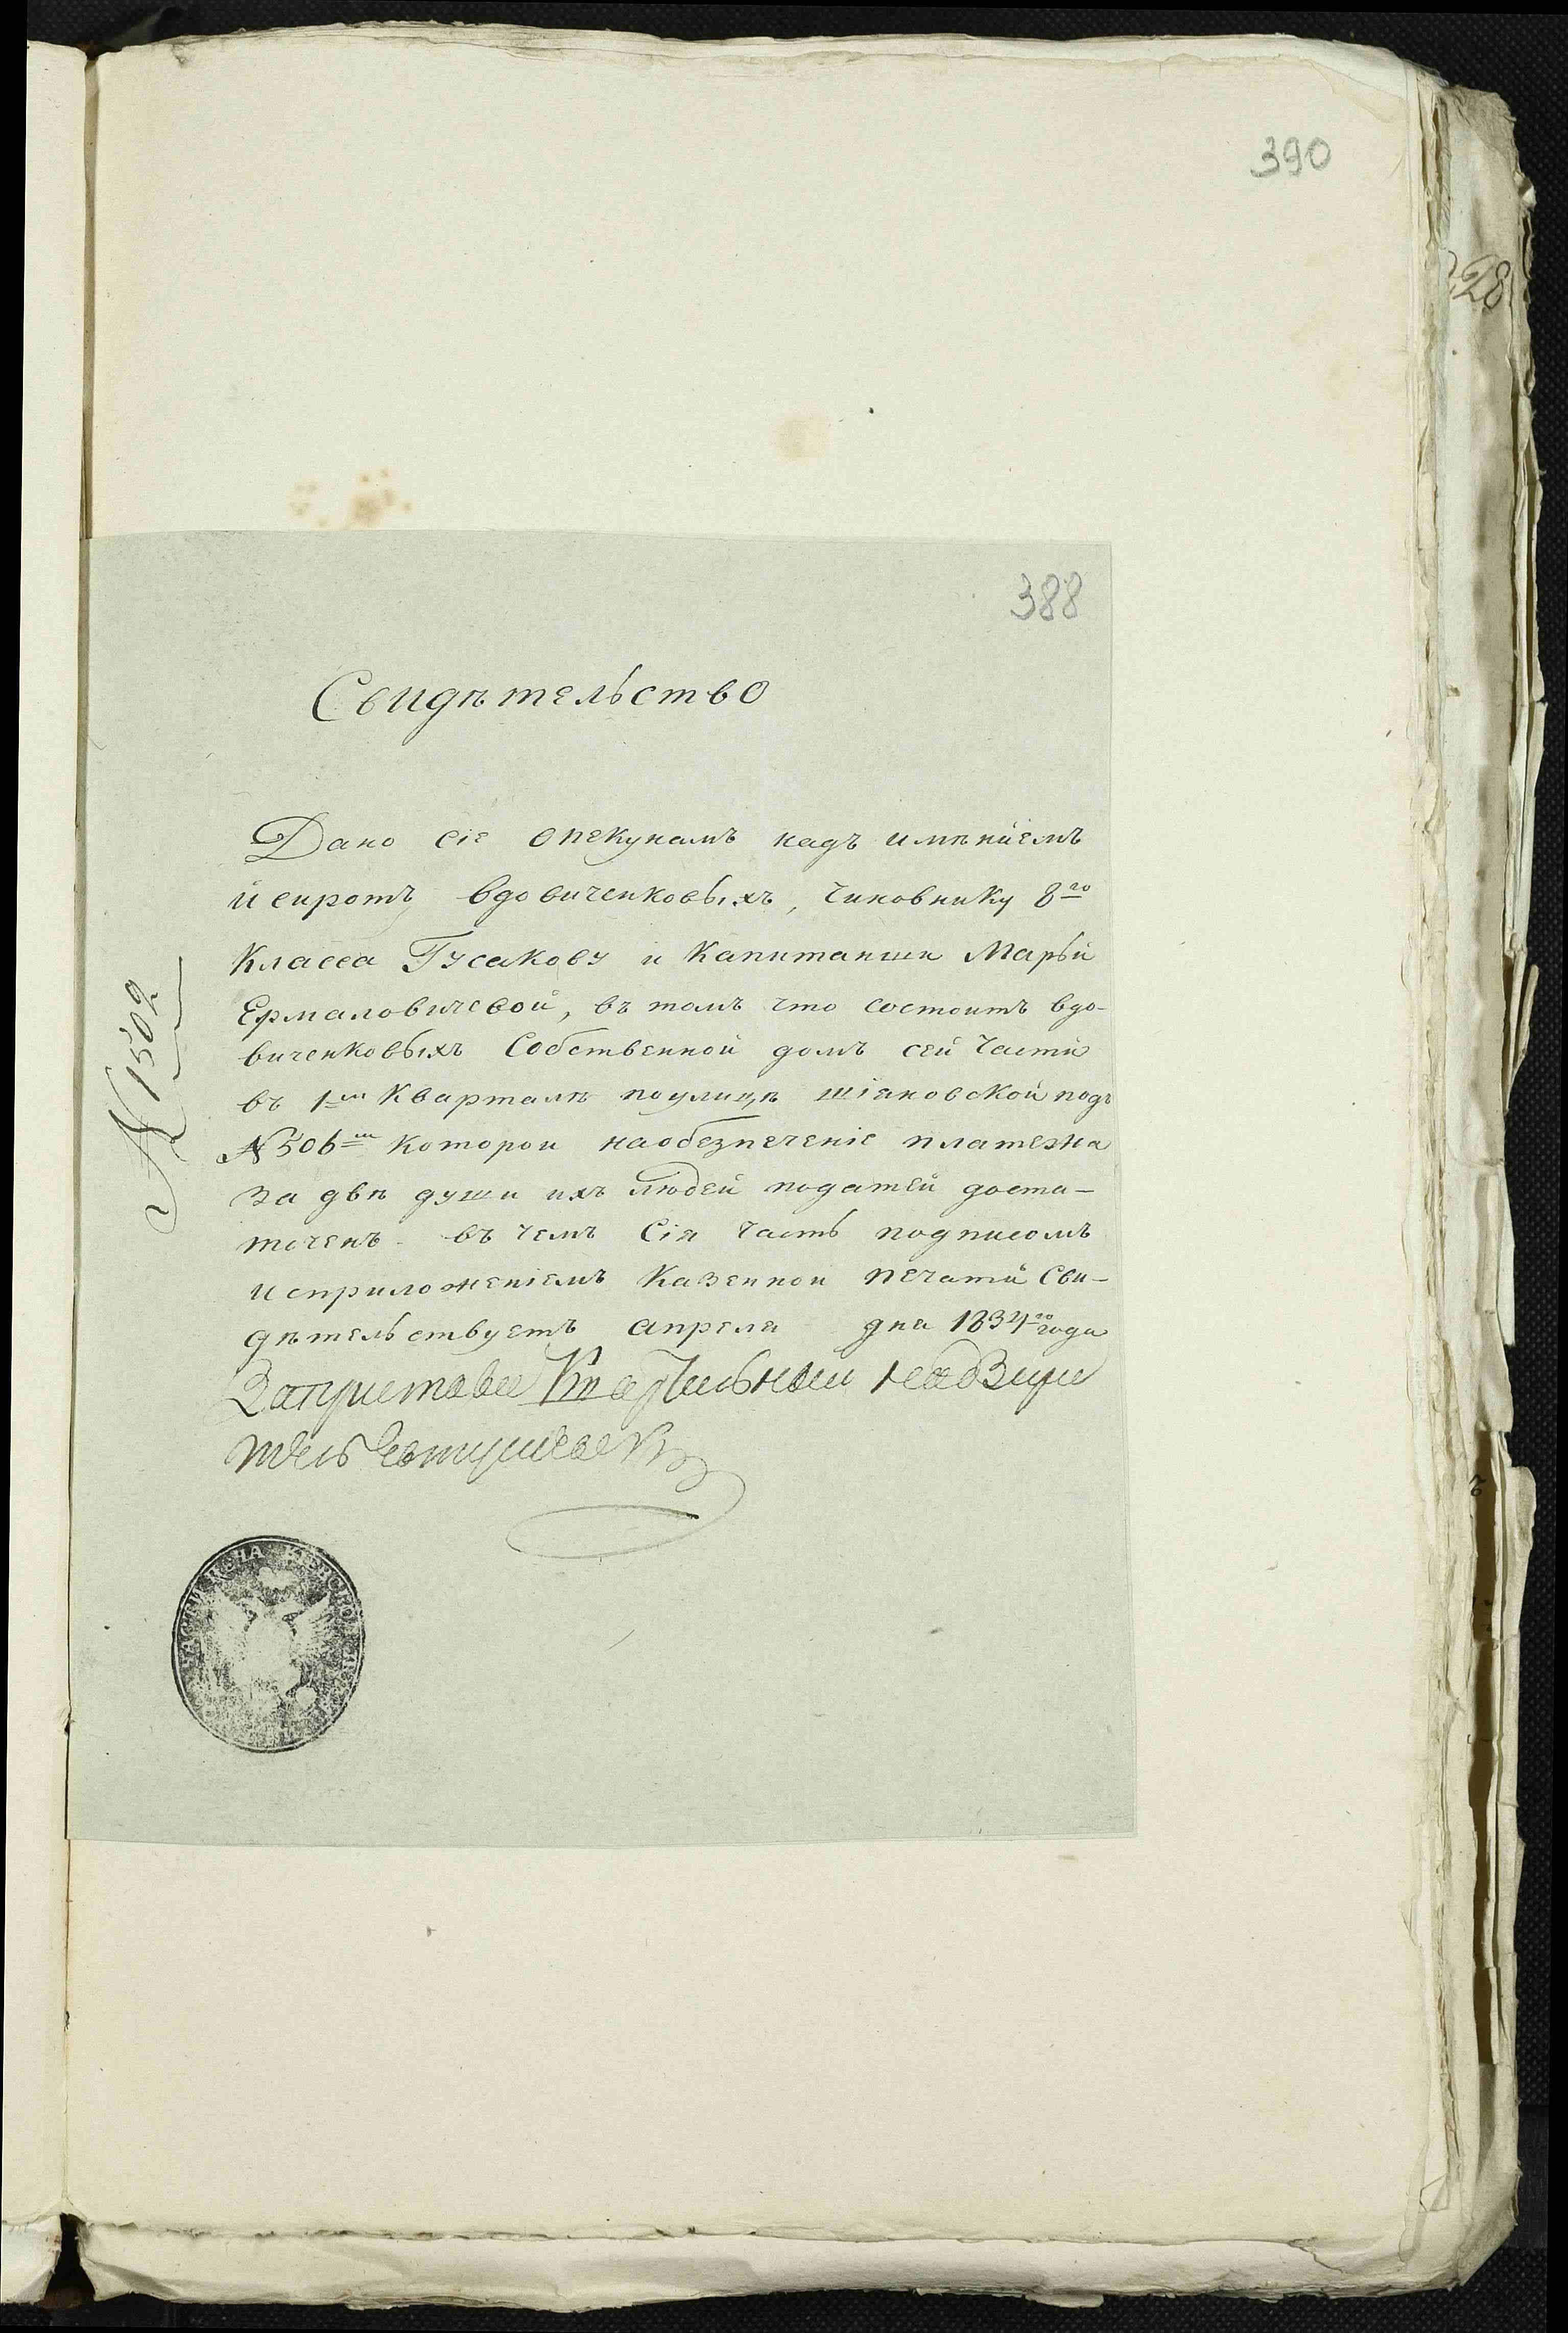 390
28
388
Свидѣтельство
Дано сіе опекунамъ надъ имѣніемъ
и сиротъ вдовиченковыхъ, Чиновнику 8го
Класса Гусакову и Капитанши Марьи
Ермаловичевой, въ томъ что состоитъ вдо-
виченковыхъ Собственной домъ сей Части
въ 1м Кварталѣ поулицѣ шіяновской подъ
№ 506м которои наобезпеченіе платежа
за двѣ души ихъ людей податей доста-
точенъ. въ чемъ Сія Часть подписомъ
исприложеніемъ Казенной печати Сви-
дѣтельствуетъ апреля дня 1834го года
Запристава Квартальный надзира
тель
№ 1502